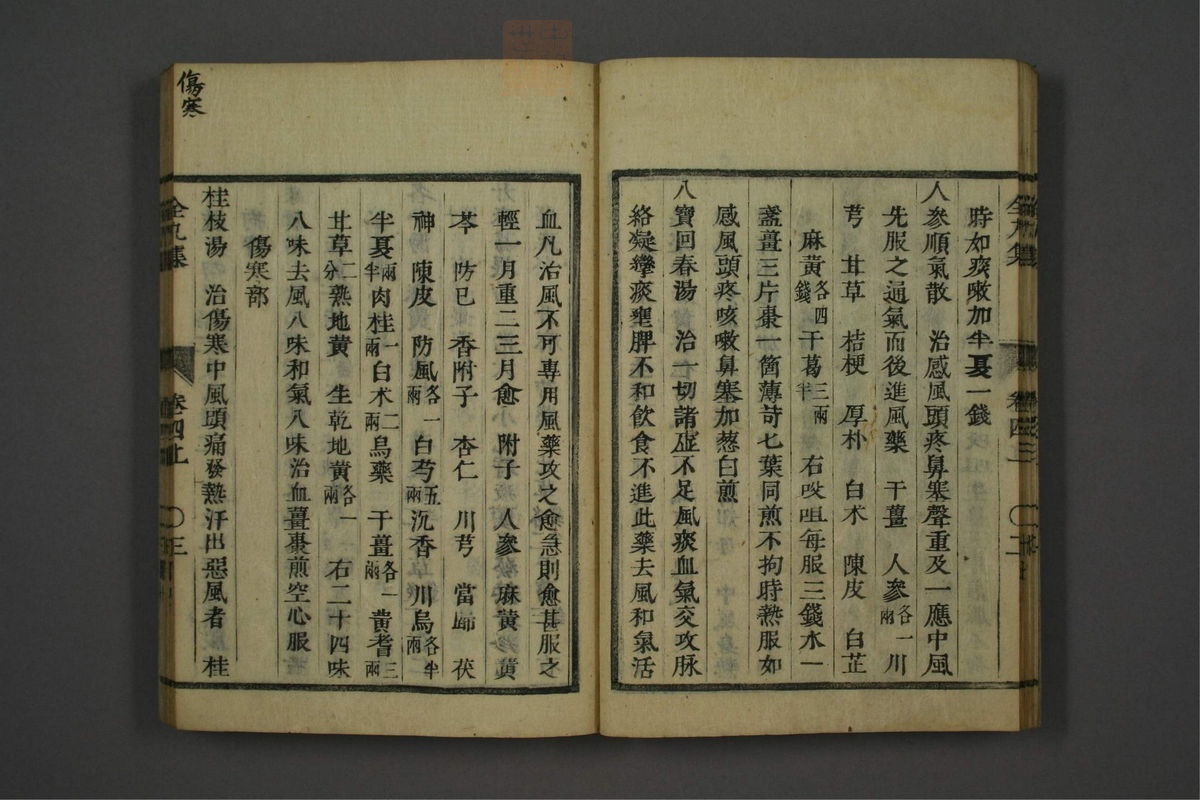 時如痰嗽加半夏一錢
人參順氣散　治感風頭疼鼻塞聲重及一應中風
先服之通氣而後進風藥　干薑　人參各一兩川
芎　甘草　桔梗　厚朴　白朮　陳皮　白芷
麻黃各四錢　干葛三兩半　右㕮咀每服三錢水一
盞薑三片棗一箇薄苛七葉同煎不拘時熱服如
感風頭疼咳嗽鼻塞加葱白煎
八寶回春湯　治一切諸虛不足風痰血氣交攻脉
絡凝攣痰壅脾不和飲食不進此藥去風和氣活
血凡治風不可專用風藥攻之愈急則愈甚服之
輕一月重二三月愈　附子　人參　麻黃　黃
芩　防已　香附子　杏仁　川芎　當歸　茯
神　陳皮　防風各一兩　白芍五兩　沉香　川烏各半兩
半夏兩半　肉桂一兩　白朮二兩　烏藥　干薑各一兩　黃耆三兩
甘草二分　熟地黃　生乾地黃各一兩　右二十四味
八味去風八味和氣八味治血薑棗煎空心服
傷寒部
桂枝湯　治傷寒中風頭痛發熱汗出惡風者　桂
全九集　卷四上　〇三
傷寒